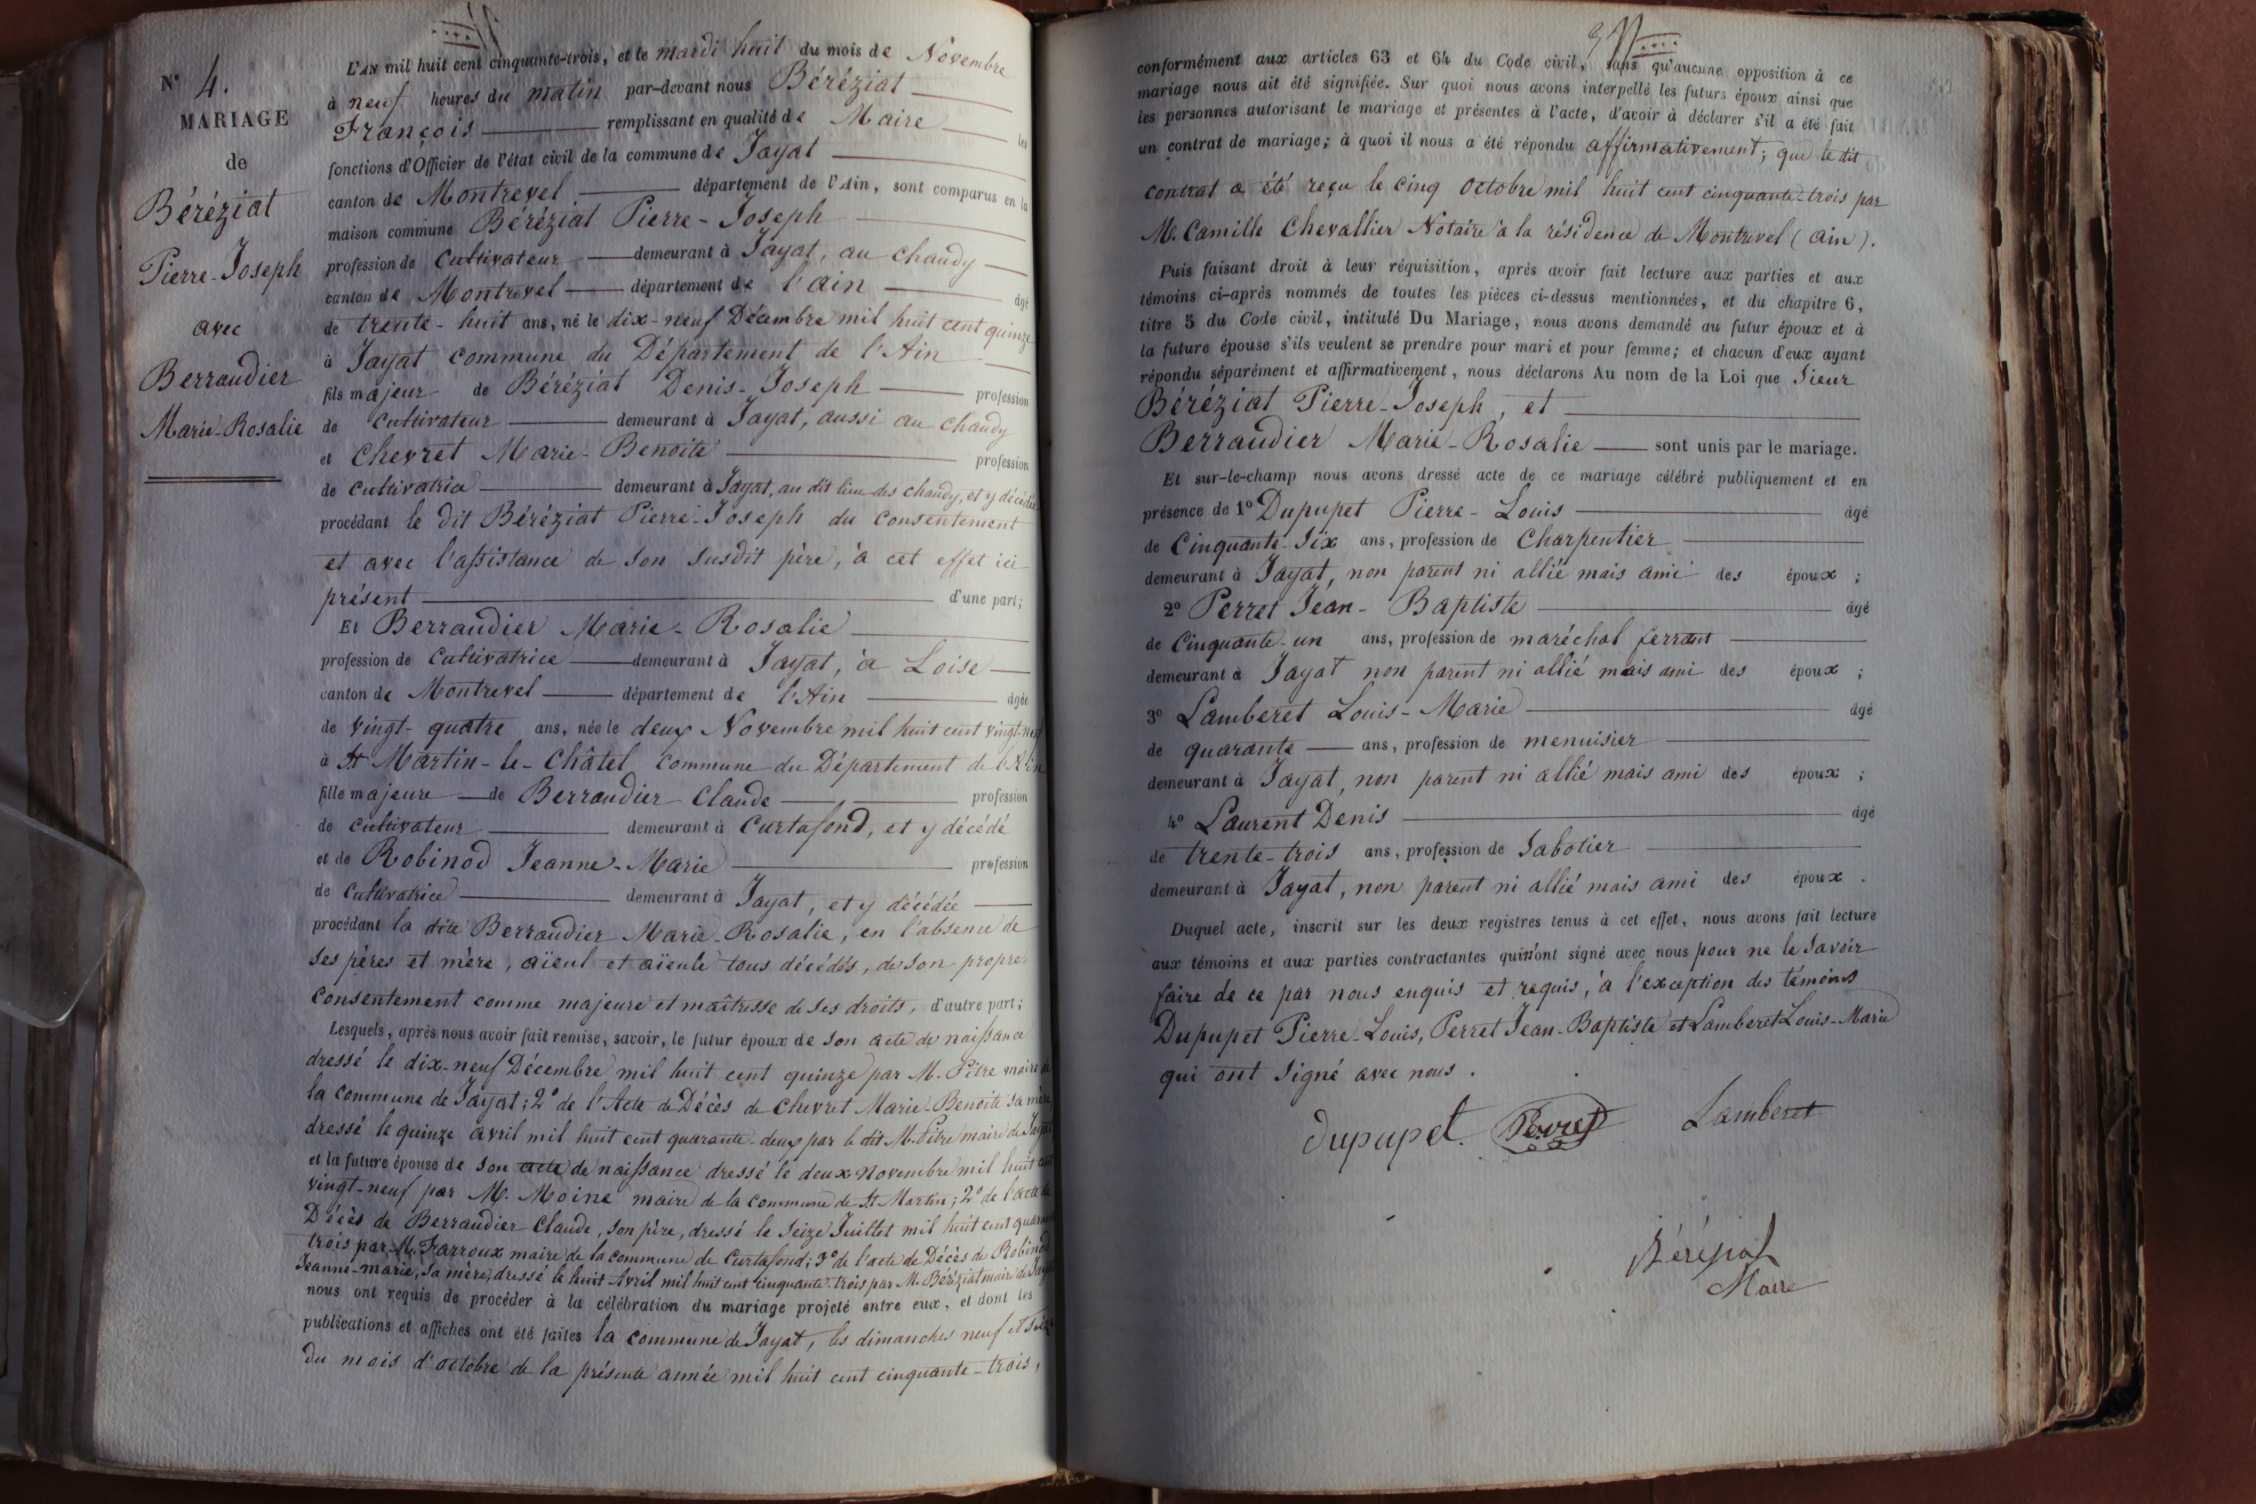 N° 4.
MARIAGE
de
Béréziat
Pierre-Joseph
avec
Berraudier
Marie-Rosalie
L'AN mil huit cent cinquante-trois, et le mardi huit du mois de Novembre
à neuf heures du matin par-devant nous Béréziat
François remplissant en qualité de Maire les
fonctions d'Officier de l'état civil de la commune de Jayat
canton de Montrevel département de l'Ain, sont comparus en la
maison commune Béréziat Pierre-Joseph
profession de Cultivateur demeurant à Jayat, au chaudy
canton de Montrevel département de l'ain âgé
de trente-huit ans, né le dix-neuf Décembre mil huit cent quinze
à Jayat commune du Département de l'Ain
fils majeur de Béréziat Denis-Joseph profession
de Cultivateur demeurant à Jayat, aussi au chaudy
et Chevret Marie-Benoite profession
de Cultivatrice demeurant à Jayat, au dit lieu des chaudy, et y décédée
procédant le dit Béréziat Pierre-Joseph du consentement
et avec l'assistance de son susdit père, à cet effet ici
présent d'une part;
Et Berraudier Marie-Rosalie
profession de Cultivatrice demeurant à Jayat, à Loise
canton de Montrevel département de l'Ain âgée
de vingt-quatre ans, née le deux Novembre mil huit cent vingt-neuf
à St Martin-le-Châtel commune du Département de l'Ain
fille majeure de Berraudier Claude profession
de cultivateur demeurant à Curtafond, et y décédé
et de Robinod Jeanne-Marie profession
de Cultivatrice demeurant à Jayat, et y décédée
procédant la dite Berraudier Marie-Rosalie, en l'absence de
ses pères et mère, aïeul et aïeule tous décédés, de son propre
consentement comme majeure et maîtresse de ses droits, d'autre part;
Lesquels, après nous avoir fait remise, savoir, le futur époux de son acte de naissance
dressé le dix-neuf Décembre mil huit cent quinze par M. Pitre maire de
la commune de Jayat; 2° de l'Acte de Décès de Chevret Marie-Benoite sa mère
dressé le quinze avril mil huit cent quarante-deux par le dit M. Pitre maire de Jayat
et la future épouse de son acte de naissance dressé le deux Novembre mil huit cent
vingt-neuf par M. Moine maire de la commune de St Martin; 2° de l'acte de
Décès de Berraudier Claude, son père, dressé le seize Juillet mil huit cent quarante
trois par M. Farroux maire de la commune de Curtafond; 3° de l'acte de Décès de Robinod
Jeanne-marie, sa mère, dressé le huit Avril mil huit cent cinquante-trois par M. Béréziat maire de Jayat
nous ont requis de procéder à la célébration du mariage projeté entre eux, et dont les
publications et affiches ont été faites la commune de Jayat, les dimanches neuf et seize
du mois d'octobre de la présente année mil huit cent cinquante-trois,
conformément aux articles 63 et 64 du Code civil, sans qu'aucune opposition à ce
mariage nous ait été signifiée. Sur quoi nous avons interpellé les futurs époux ainsi que
les personnes autorisant le mariage et présentes à l'acte, d'avoir à déclarer s'il a été fait
un contrat de mariage; à quoi il nous a été répondu affirmativement; que le dit
contrat a été reçu le cinq octobre mil huit cent cinquante-trois par
M. Camille Chevallier Notaire à la résidence de Montrevel (ain).
Puis faisant droit à leur réquisition, après avoir fait lecture aux parties et aux
témoins ci-après nommés de toutes les pièces ci-dessus mentionnées, et du chapitre 6,
titre 5 du Code civil, intitulé Du Mariage, nous avons demandé au futur époux et à
la future épouse s'ils veulent se prendre pour mari et pour femme; et chacun d'eux ayant
répondu séparément et affirmativement, nous déclarons Au nom de la Loi que Sieur
Béréziat Pierre-Joseph, et
Berraudier Marie-Rosalie sont unis par le mariage.
Et sur-le-champ nous avons dressé acte de ce mariage célébré publiquement et en
présence de 1° Dupupet Pierre-Louis âgé
de Cinquante-six ans, profession de Charpentier
demeurant à Jayat, non parent ni allié mais ami des époux;
2° Perret Jean-Baptiste âgé
de Cinquante-un ans, profession de maréchal ferrant
demeurant à Jayat non parent ni allié mais ami des époux;
3° Lamberet Louis-Marie âgé
de quarante ans, profession de menuisier
demeurant à Jayat, non parent ni allié mais ami des époux;
4° Laurent Denis âgé
de trente-trois ans, profession de Sabotier
demeurant à Jayat, non parent ni allié mais ami des époux.
Duquel acte, inscrit sur les deux registres tenus à cet effet, nous avons fait lecture
aux témoins et aux parties contractantes qui n'ont signé avec nous pour ne le savoir
faire de ce par nous enquis et requis, à l'exception des témoins
Dupupet Pierre-Louis, Perret Jean-Baptiste et Lamberet Louis-Marie
qui ont signé avec nous.
dupupet. Perret Lamberet
Béréziat
Maire